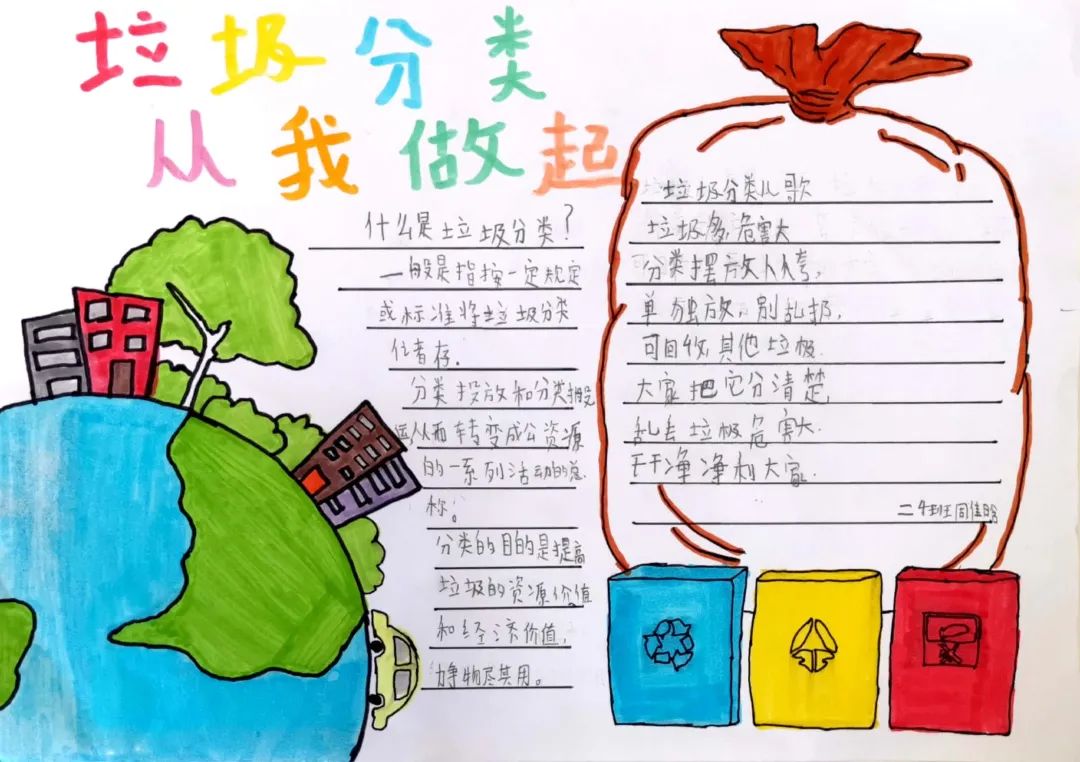 垃圾分类
从我做起
什么是垃圾分类?
一般是指按一定规定
或标准将垃圾分类
存.
分类投放和分类搬
运从而转变成公资源
的一系列活动的总
称。
分类的目的是提高
垃圾的资源价值
和经济价值,
力争物尽其用。
垃圾分类儿歌
垃圾多,危害大
分类摆放人人夸,
单独放,别乱扔,
可回收,其他垃圾.
大家把它分清楚,
乱丢垃极危害大.
干干净净利大家.
二4班